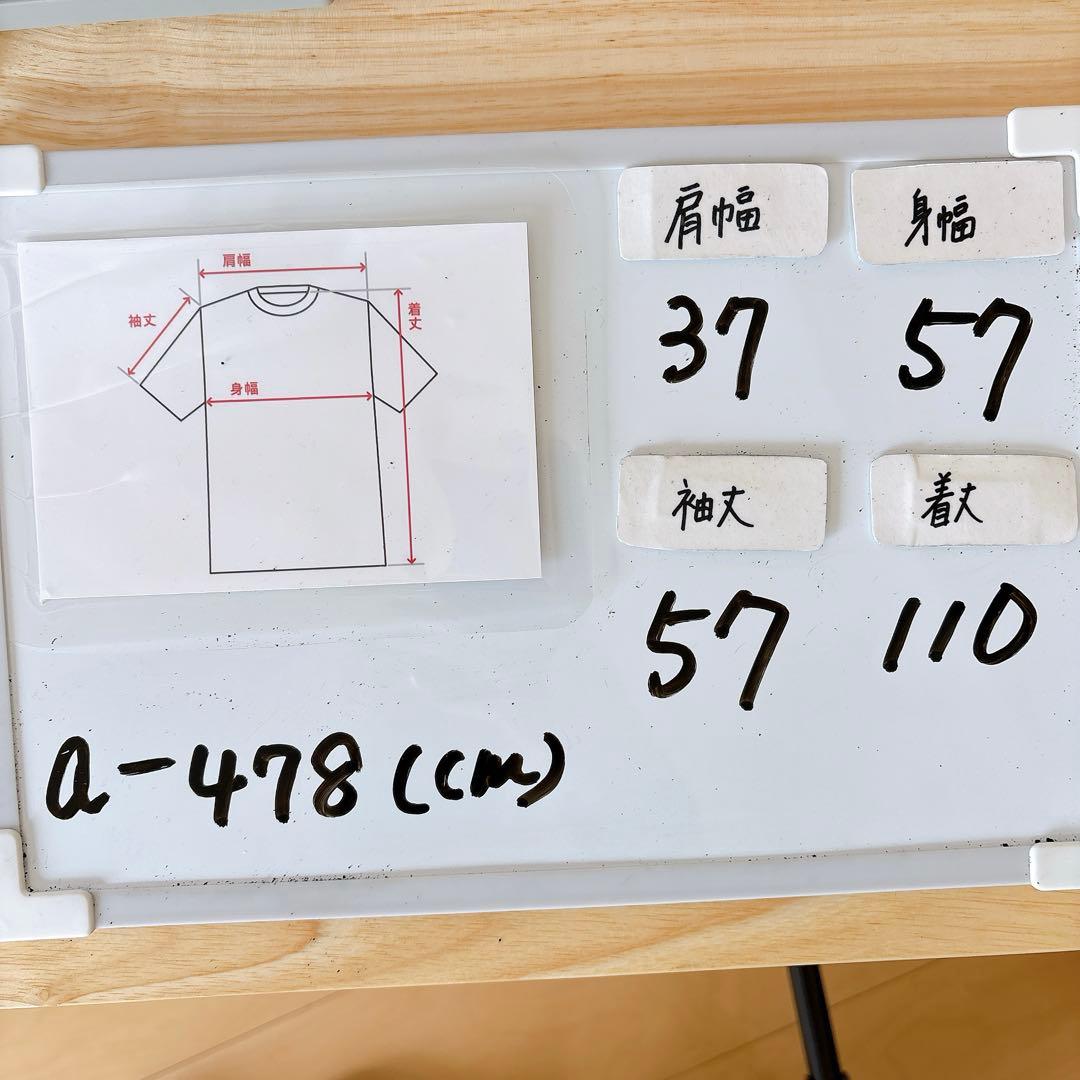 肩幅
袖丈
着丈
身幅
肩幅
身幅
37
57
袖丈
着丈
57
110
a-478(cm)